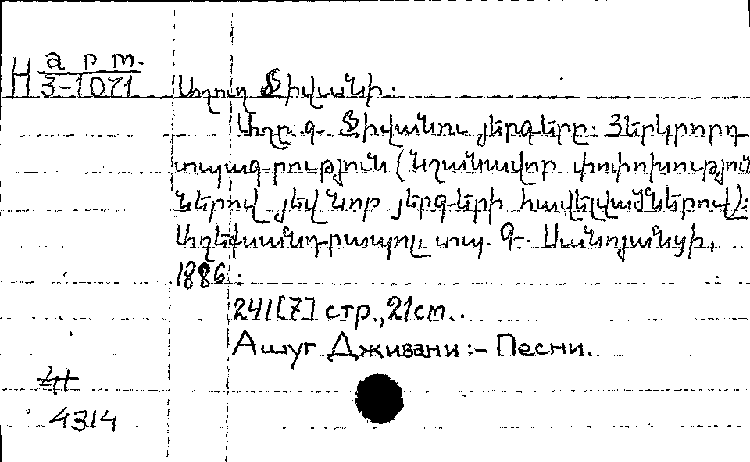 H арт.
3-1071
Աշուղ Ջիվանի:
Աշըղ Ջիվանու յերգերը: Յերկրորդ
տպագրություն (նշանավոր փոփոխություն
ներով յեվ նոր յերգերի հավելվածներով):
Աղեքսանդրապոլ, տպ. Գ. Սանոյանցի,
1886:
241[7] стр., 21 cm.
Ашуг Дживани :- Песни.
4314